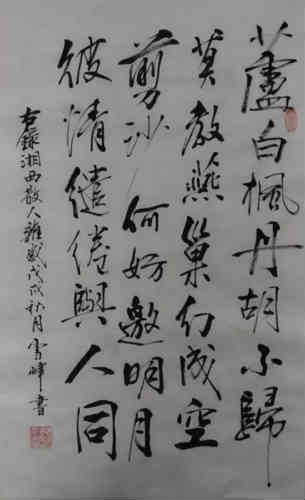 蘆白楓丹胡不歸
莫教燕巢幻成空
剪沙何妨邀明月
彼情繾綣與人同
右錄湘西散人雜感戊戌秋月雪峰書